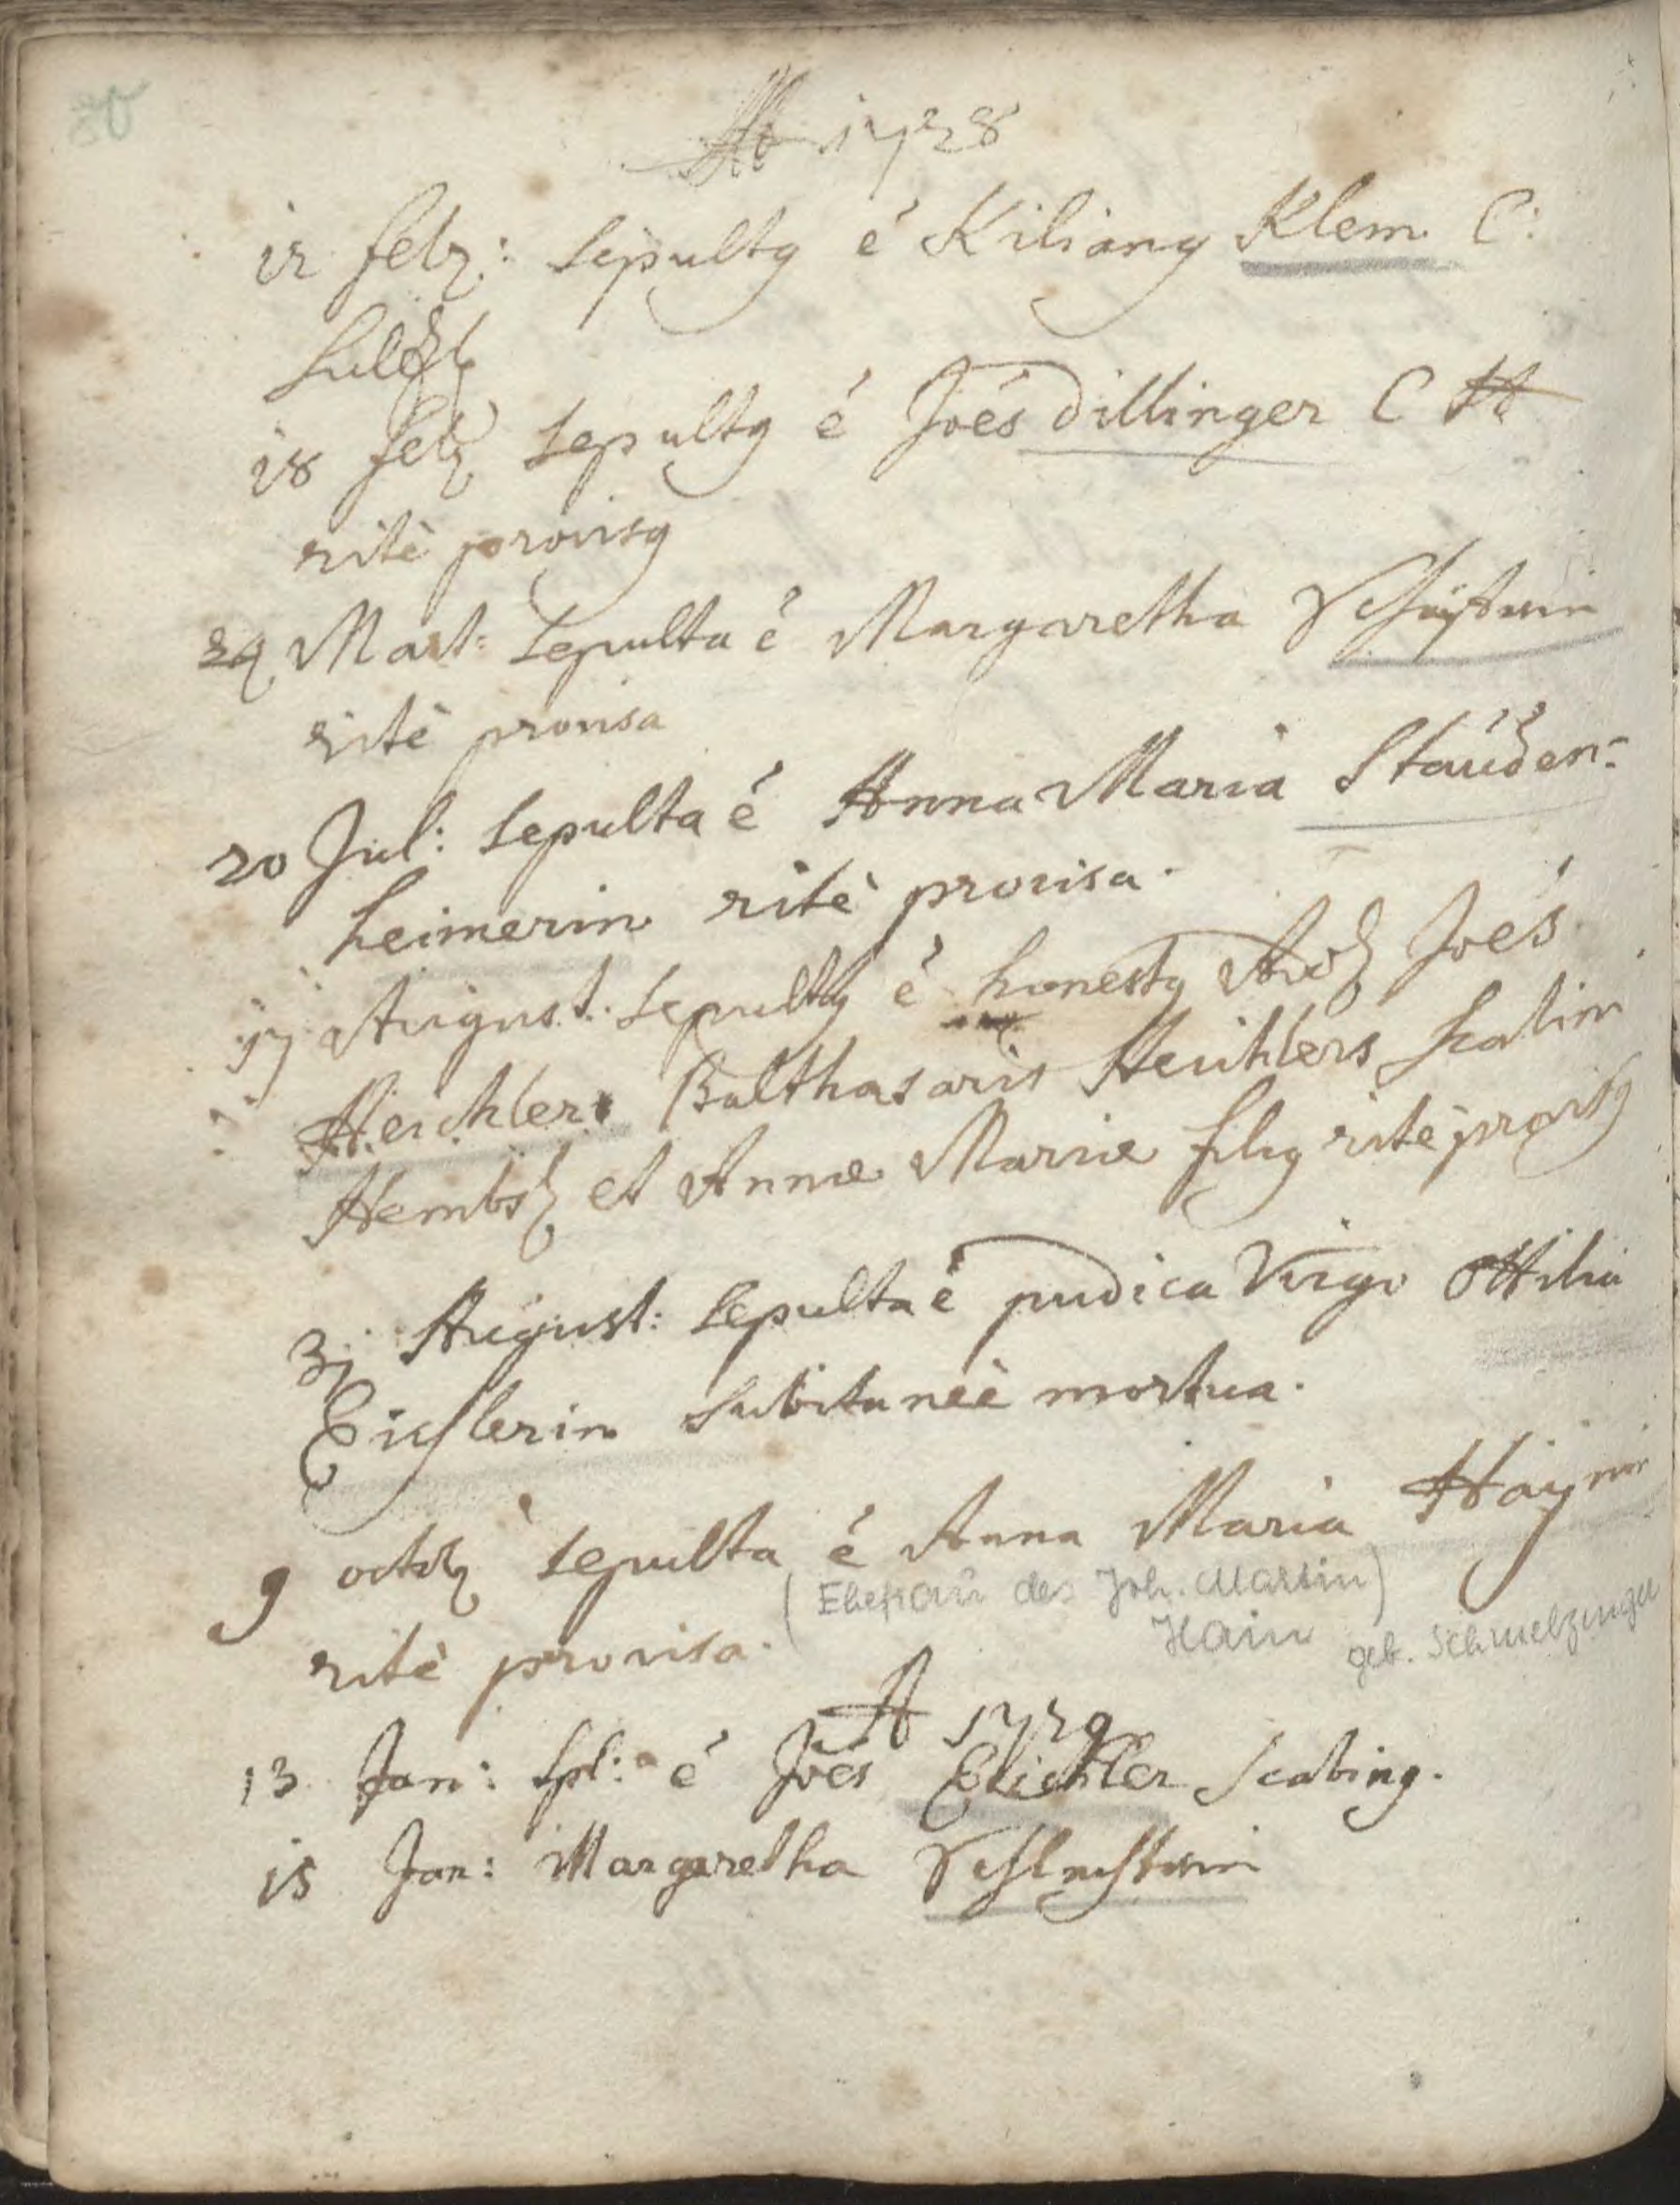 A 1728
12 febr: sepultus ē Kilianus Klem C:
Sulzb
18 febr sepultus ē Joēs Dillinger C H
ritè provisus
24 Mart: sepulta ē Margaretha
ritè provisa
20 Jul: sepulta ē Anna Maria Stauden=
heimerin ritè provisa.
17 August. sepultus ē honestus Adol Joēs
Heichler Balthasaris Heichlers scabin
Hembsb et Annæ Mariæ filius ritè provisus
31 August: sepulta ē pudica Virgo Ottilia
Eichlerin subitaneè mortua.
9 octob sepulta ē Anna Maria Haynin
(Ehefrau des Joh. Martin)
Hain geb. Schmelzinger
ritè provisa.
A 1729
13 Jan: spl: ē Joēs Eichler Scabinus.
15 Jan: Margaretha